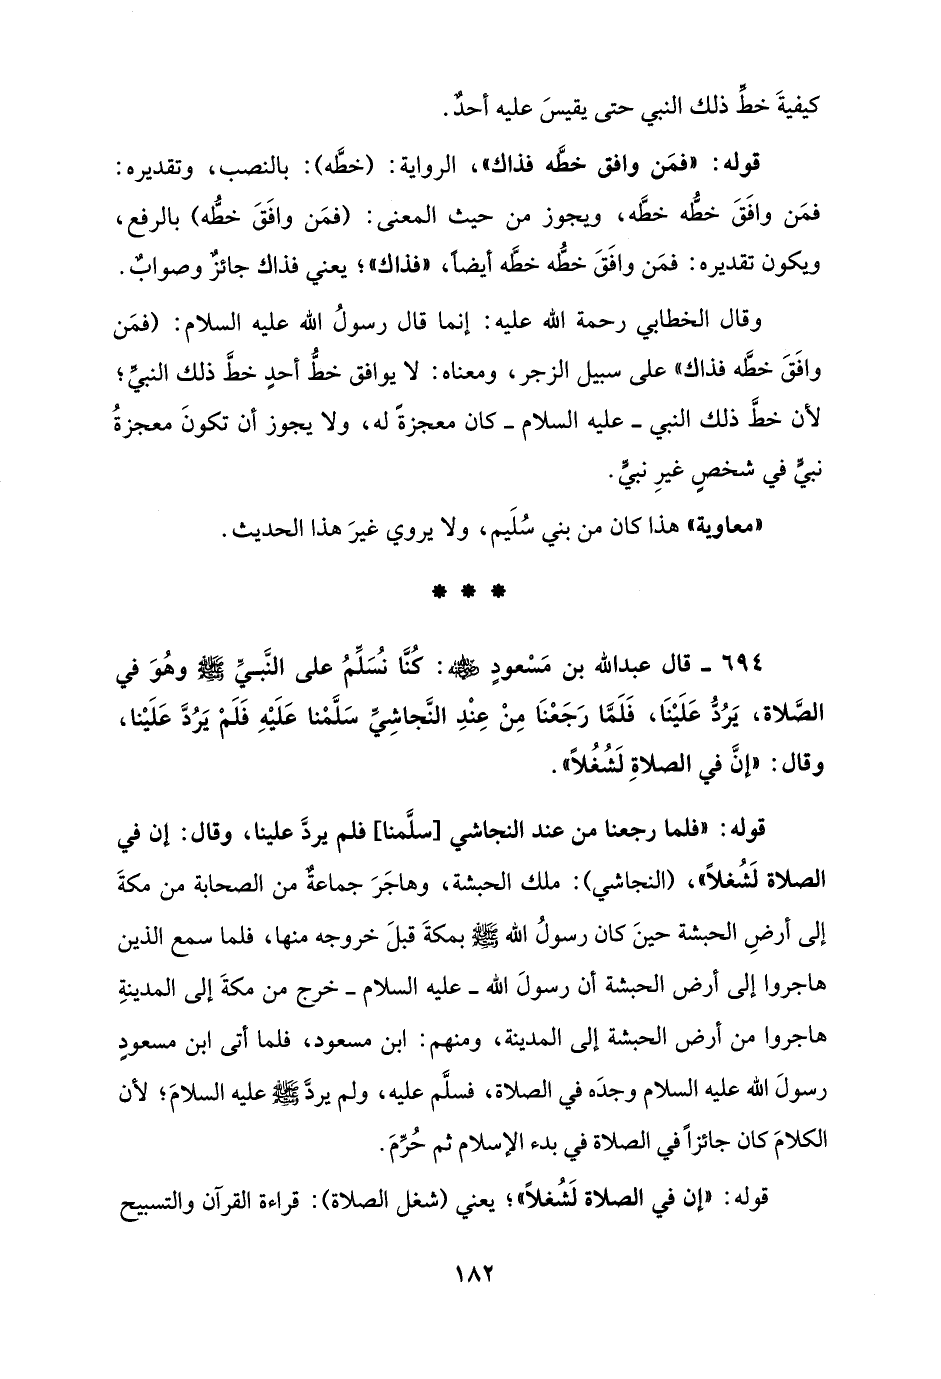 كيفيةَ خطِّ ذلك النبي حتى يقيسَ عليه أحدٌ.
قوله: «فمَن وافق خطَّه فذاك»، الرواية: (خطَّه): بالنصب، وتقديره:
فمَن وافَقَ خطُّه خطَّه، ويجوز من حيث المعنى: (فمَن وافَقَ خطُّه) بالرفع،
ويكون تقديره: فمَن وافَقَ خطُّه خطَّه أيضاً، «فذاك»؛ يعني فذاك جائزٌ وصوابٌ.
وقال الخطابي رحمة الله عليه: إنما قال رسولُ الله عليه السلام: (فمَن
وافَقَ خطَّه فذاك» على سبيل الزجر، ومعناه: لا يوافق خطُّ أحدٍ خطَّ ذلك النبيِّ؛
لأن خطَّ ذلك النبي ـ عليه السلام ـ كان معجزةً له، ولا يجوز أن تكونَ معجزةُ
نبيٍّ في شخصٍ غيرِ نبيٍّ.
«معاوية» هذا كان من بني سُلَيم، ولا يروي غيرَ هذا الحديث.
* * *
٦٩٤ ـ قال عبدالله بن مَسْعودٍ ﵁: كُنَّا نُسَلِّمُ على النَّبيِّ ﷺ وهُوَ في
الصَّلاة، يَرُدُّ عَلَيْنَا، فَلَمَّا رَجَعْنَا مِنْ عِنْدِ النَّجاشِيِّ سَلَّمْنا عَلَيْهِ فَلَمْ يَرُدَّ عَلَيْنا،
وقال: «إنَّ في الصلاةِ لَشُغُلاً».
قوله: «فلما رجعنا من عند النجاشي [سلَّمنا] فلم يردَّ علينا، وقال: إن في
الصلاة لَشُغلاً»، (النجاشي): ملك الحبشة، وهاجَرَ جماعةٌ من الصحابة من مكةَ
إلى أرضِ الحبشة حينَ كان رسولُ الله ﷺ بمكةَ قبلَ خروجه منها، فلما سمع الذين
هاجروا إلى أرض الحبشة أن رسولَ الله ـ عليه السلام ـ خرج من مكةَ إلى المدينةِ
هاجروا من أرض الحبشة إلى المدينة، ومنهم: ابن مسعود، فلما أتى ابن مسعودٍ
رسولَ الله عليه السلام وجدَه في الصلاة، فسلَّم عليه، ولم يردَّ ﷺ عليه السلامَ؛ لأن
الكلامَ كان جائزاً في الصلاة في بدء الإسلام ثم حُرِّمَ.
قوله: «إن في الصلاة لَشُغلاً»؛ يعني (شغل الصلاة): قراءة القرآن والتسبيح
١٨٢